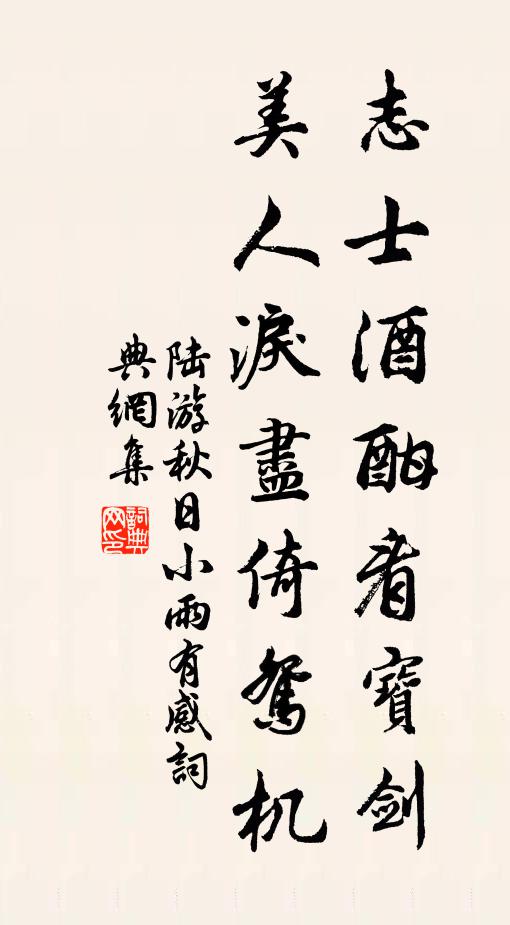 志士酒酣看寶劍
美人淚盡倚鴛机
陸游秋日小雨有感詞
典網集
詞典
网印